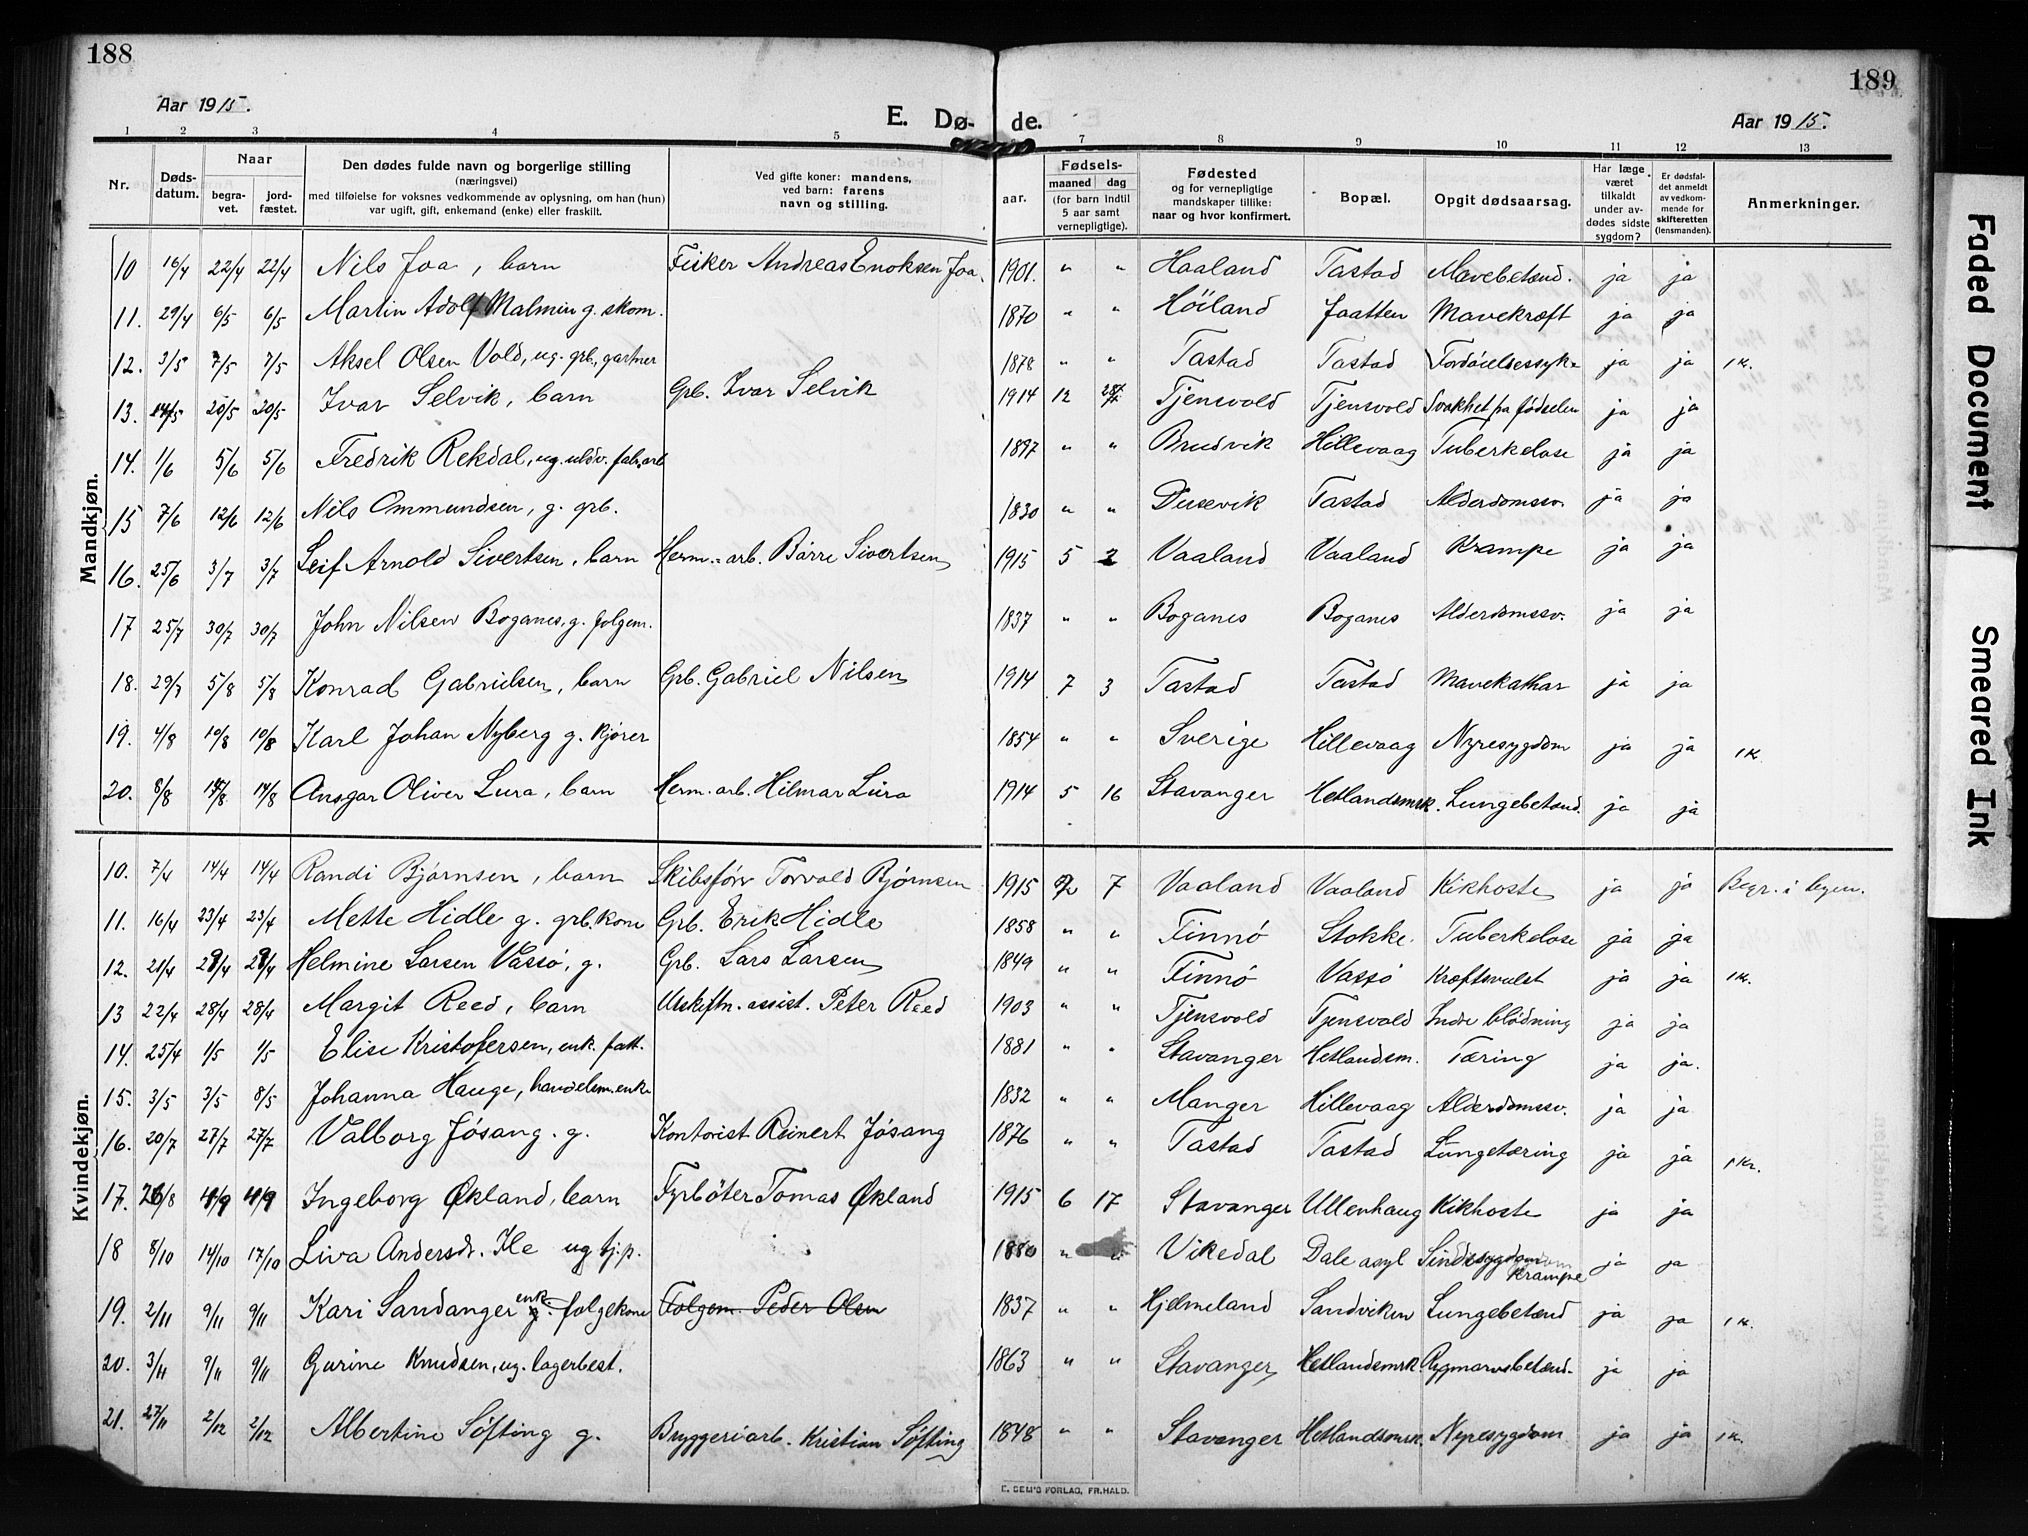 188
189
Aar 1915.
E. Dø-
de.
Aar 1915.
1 2 3 4 5 7 8 9 10 11 12 13
Nr.
Døds-datum.
Naar
begra-vet.
jord-fæstet.
Den dødes fulde navn og borgerlige stilling
(næringsvei)
med tilføielse for voksnes vedkommende av oplysning, om han (hun)
var ugift, gift, enkemand (enke) eller fraskilt.
Ved gifte koner: mandens,
ved barn: farens
navn og stilling.
Fødsels-
aar.
maaned
dag
(for barn indtil
5 aar samt
vernepligtige).
Fødested
og for vernepligtige
mandskaper tillike:
naar og hvor konfirmert.
Bopæl.
Opgit dødsaarsag.
Har læge
været
tilkaldt
under av-
dødes sidste
sygdom?
Er dødsfal-
det anmeldt
av vedkom-
mende for
skifteretten
(lensmanden).
Anmerkninger.
Mandkjøn.
10 16/4 22/4 22/4 Nils Joa, barn Fisker Andreas Enoksen Joa. 1901. " " Haaland Tastad Mavebetænd. ja ja
11. 29/4 6/5 6/5 Martin Adolf Malmin g. skom. 1870 " " Höiland Jaatten Mavekræft ja ja
12. 3/5 7/5 7/5 Aksel Olsen Vold, ug. grb., gartner 1878 " " Tastad Tastad Fordöielsessyk. ja ja 1 K.
13. 14/5 20/5 20/5 Ivar Selvik, barn Grb. Ivar Selvik 1914 12 Tjensvold Tjensvold Svakhet fra födselen ja ja
14. 1/6 5/6 5/6 Fredrik Rekdal, ug. uldv. fab.arb 1897 " " Bruvik Hillevaag Tuberkelose ja ja
15 7/6 12/6 12/6 Nils Ommundsen, g. grb. 1830 " " Dusevik Tastad Alderdomssv. ja ja
16. 25/6 3/7 3/7 Leif Arnold Sivertsen, barn Herm.-arb. Börre Sivertsen 1915 5 2 Vaaland Vaaland Krampe ja ja
17 25/7 30/7 30/7 John Nilsen Boganes, g. folgem. 1837 " " Boganes Boganes Alderdomssv. ja ja
18. 29/7 5/8 5/8 Konrad Gabrielsen, barn Grb. Gabriel Nilsen 1914 7 3 Tastad Tastad Mavekathar ja ja
19. 4/8 10/8 10/8 Karl Johan Nyberg g. kjører 1854 " " Sverige Hillevaag Nyresygdom ja ja 1 K
20. 8/8 14/8 14/8 Ansgar Oliver Lura, barn Herm.-arb. Hilmar Lura 1914 5 16 Stavanger Hetlandsmrk. Lungebetænd. ja ja
Kvindekjøn.
10. 7/4 14/4 14/4 Randi Bjørnsen, barn Skibsförer Torvald Bjørnsen 1915 2 7 Vaaland Vaaland Kikhoste ja ja Begr. i byen.
11. 16/4 23/4 23/4 Mette Hidle g. grb.kone Grb. Erik Hidle 1858 " " Finnö Stokke. Tuberkelose ja ja
12. 21/4 28/4 28/4 Helmine Larsen Vassö, g. Grb. Lars Larsen 1849 " " Finnö Vassö Kræftsvulst ja ja 1 K.
13 22/4 28/4 28/4 Margit Reed, barn Utskiftn. assist. Peter Reed 1903 " " Tjensvold Tjensvold Indre blödning ja ja
14. 25/4 1/5 1/5 Elise Kristofersen, enk. fatt. 1881 " " Stavanger Hetlandsm. Tæring ja ja.
15. 3/5 3/5 8/5 Johanna Hauge, handelsm.enke 1832 " " Manger Hillevaag Alderdomssv. ja ja
16. 20/7 27/7 27/7 Valborg Jösang. g. Kontorist Reinert Jösang 1876 " " Tastad Tastad Lungetæring ja ja 1 Kr.
17. 26/8 4/9 4/9 Ingeborg Økland, barn Fyrböter Tomas Økland 1915 6 17 Stavanger Ullenhaug Kikhoste ja ja
18 8/10 14/10 17/10 Liva Andersdr. Ile ug tj.p. 1880 " " Vikedal Dale asyl Sindssygdom Krampe ja ja
19. 2/11 9/11 9/11 Kari Sandanger enk g. folgekone Folgem. Peder Olsen 1837 " " Hjelmeland Sandviken Lungebetænd ja ja 1 K.
20. 3/11 9/11 9/11 Gurine Knudsen, ug. lagerbest. 1863 " " Stavanger Hetlandsmrk. Rygmarvsbetænd. ja ja
21. 27/11 2/12 2/12 Albertine Söfting g. Bryggeriarb. Kristian Söfting 1848 " " Stavanger Hetlandsmrk. Nyresygdom ja ja 1 K.
E. SEM'S FORLAG, FR.HALD.
Faded Document
Smeared Ink